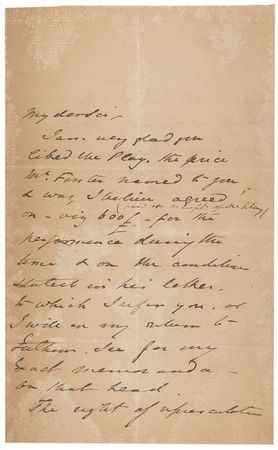 My dear Sir,
I am very glad you
liked the Play. The price
Mr. Forster named to you
& was, I believe agreed
(paid on receipt of the Play)
on - viz 600£ - for the
performance during the
time & on the conditions
stated in his letter,
to which I refer you, or
I will on my return to
see for my
exact memoranda -
on that head.
The right of